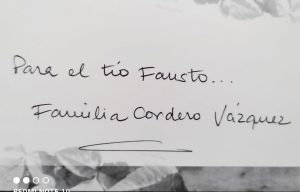 Para el tío Fausto...
Familia Cordero Vázquez
REDMI NOTE 10